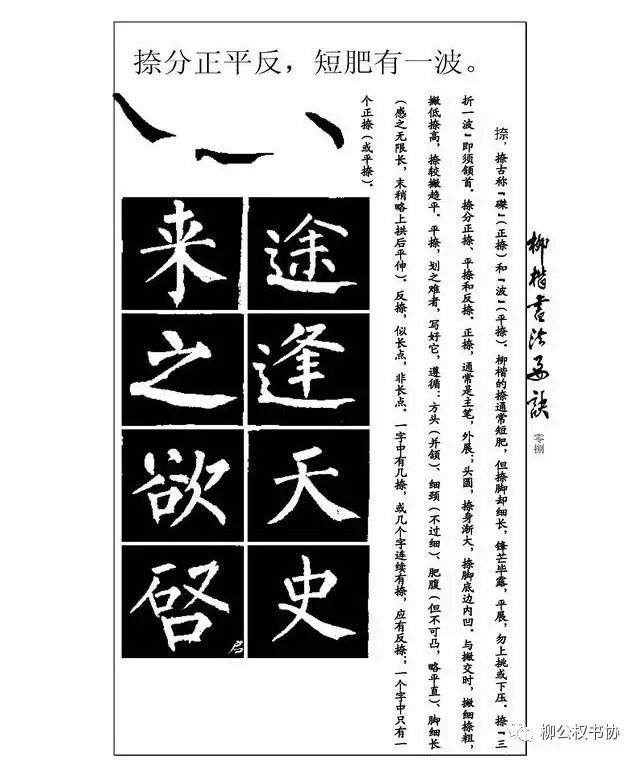 捺分正平反，短肥有一波。
柳楷書法要訣
零捌
捺，捺古称“磔”（正捺）和“波”（平捺）。柳楷的捺通常短肥，但捺脚却细长，锋芒毕露，平展，勿上挑或下压。捺“三
折一波”即须领首。捺分正捺、平捺和反捺。正捺，通常是主笔，外展；头圆，捺身渐大，捺脚底边内凹。与撇交时，撇细捺粗，
撇低捺高，捺较撇趋平。平捺，划之难者，写好它，遵循：方头（并领）、细颈（不过细）、肥腹（但不可凸，略平直）、脚细长
（感之无限长，末稍略上拱后平伸）。反捺，似长点，非长点。一字中有几捺，或几个字连续有捺，应有反捺；一个字中只有一
个正捺（或平捺）。
途逢天史
来之欲啓
启
柳公权书协